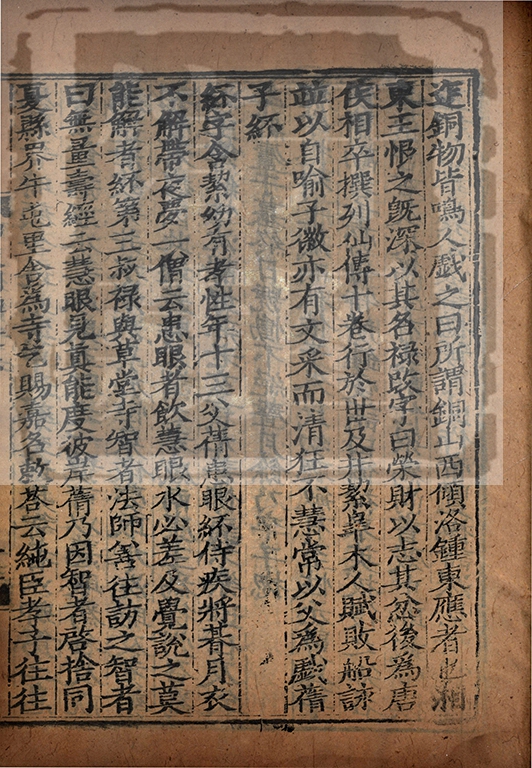 迕銅物皆鳴人戯之曰所謂銅山西傾洛鍾東應者也湘
東王恨之旣深以其名禄改字曰榮財以志其忿後爲唐
侯相卒撰列仙傳十卷行於世及井絜皐木人賦敗船詠
並以自喻子徽亦有文采而清狂不慧常以父爲戯蒨
子紑
紑字含絜幼有孝性年十三父蒨患眼紑侍疾將朞月衣
不解帶夜夢一僧云患眼者飲慧眼水必差及覺說之莫
能解者紑第三叔禄與草堂寺智者法師善往訪之智者
曰無量壽經云慧眼見真能度彼岸蒨乃因智者啓捨同
夏縣界牛屯里舍爲寺乞賜嘉名敕荅云純臣孝子往往